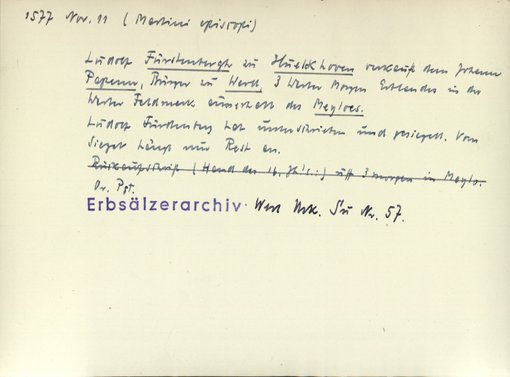 1577 Nov. 11 (Martini episcopi)
Ludolf Fürstenbergh zu Huekkhoven verkauft dem Johann
Papenn, Bürger zu Werll, 3 Werler Morgen Erblandes in der
Werler Feldmark innerhalb des Meyloes.
Ludolf Fürstenberg hat unterschrieben und gesiegelt. Vom
Siegel hängt nur Rest an.
Rückaufschrift (Hand des 16. Jh's.:) uff 3 morgen in Meylo.
Or. Pgt.
Erbsälzerarchiv Werl Urk. Nr. 57.